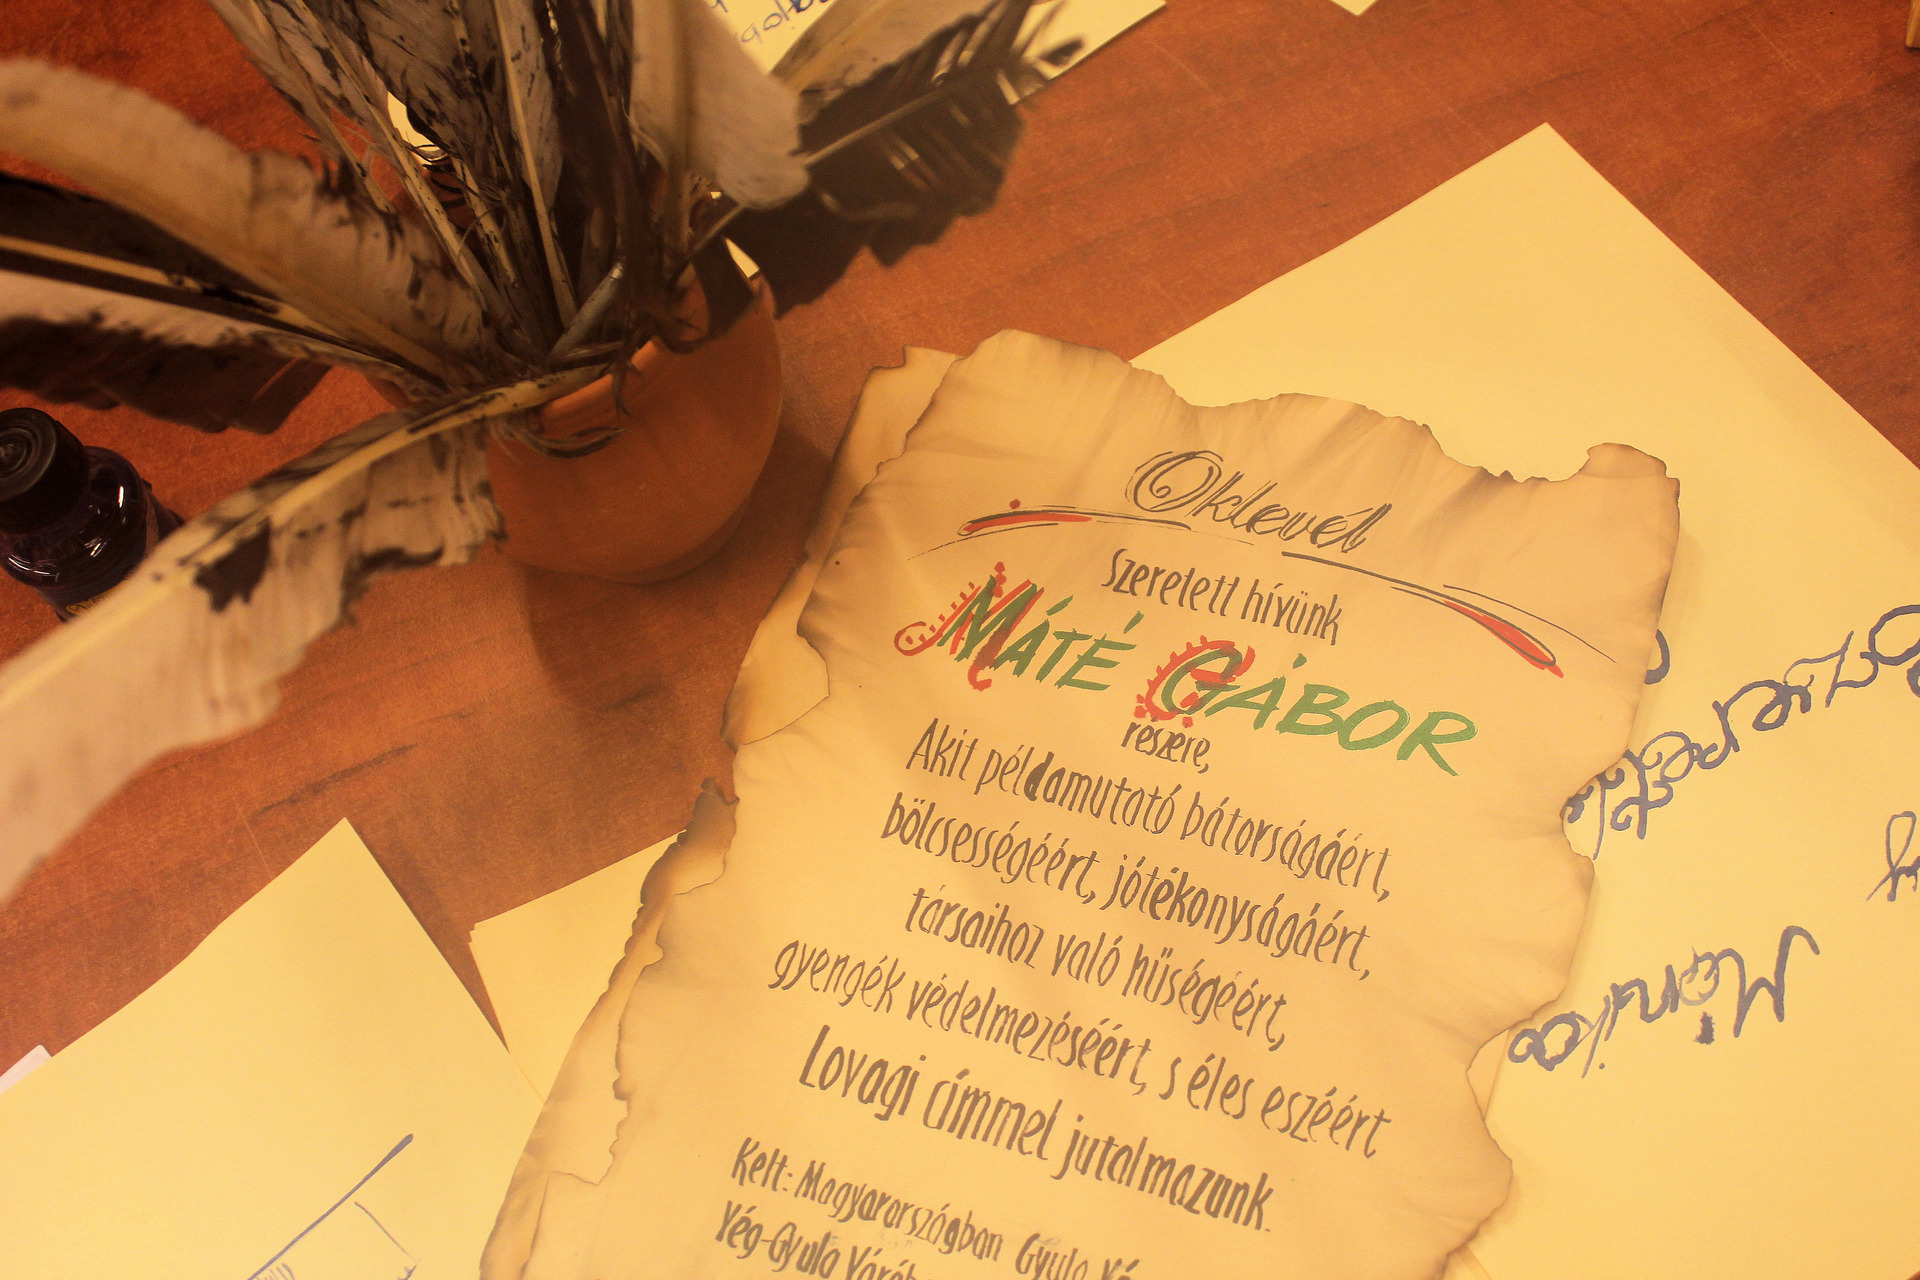 Oklevél
Szeretett hívünk
MÁTÉ GÁBOR
részére,
Akit példamutató bátorságáért,
bölcsességéért, jótékonyságáért,
társaihoz való hűségéért,
gyengék védelmezéséért, s éles eszéért
Lovagi címmel jutalmazunk.
Kelt: Magyarországban Gyula
Vég-Gyula
Mónika